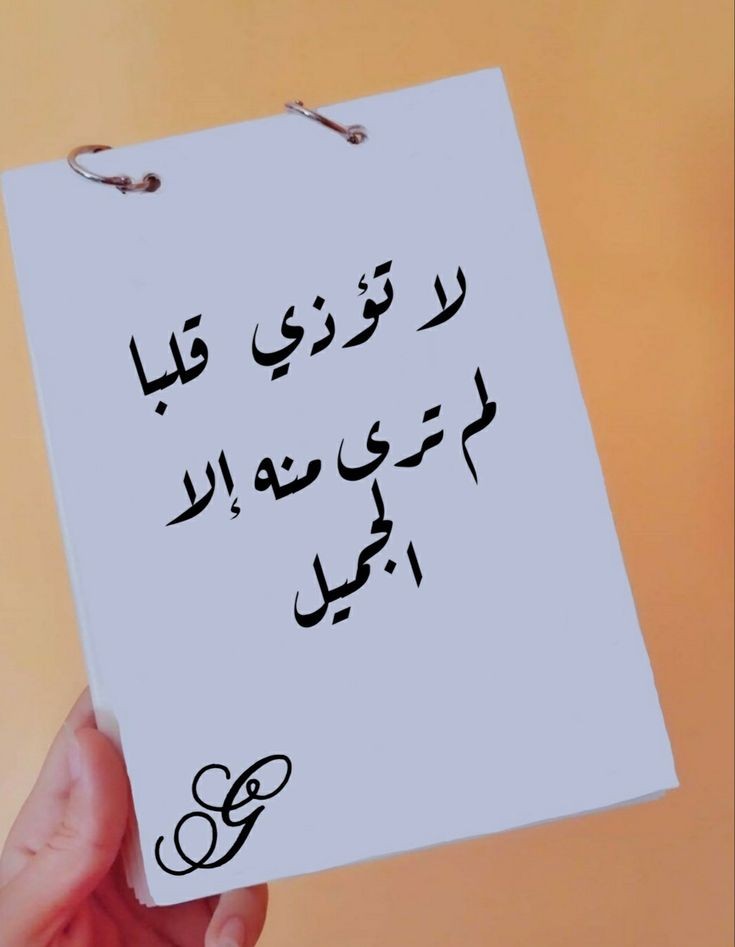 لا تؤذي قلبا
لم ترى منه إلا
الجميل
G